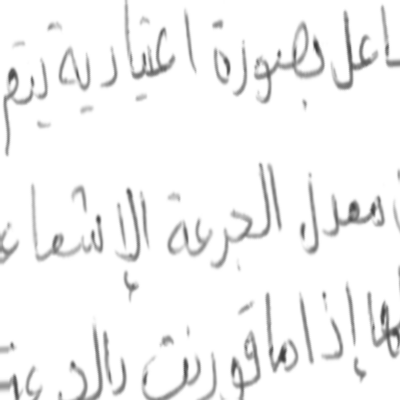 اعل بصورة اعتيادية يتم
معدل الجرعة الإشعاع
ها إذا ما قورنت بالجرعة